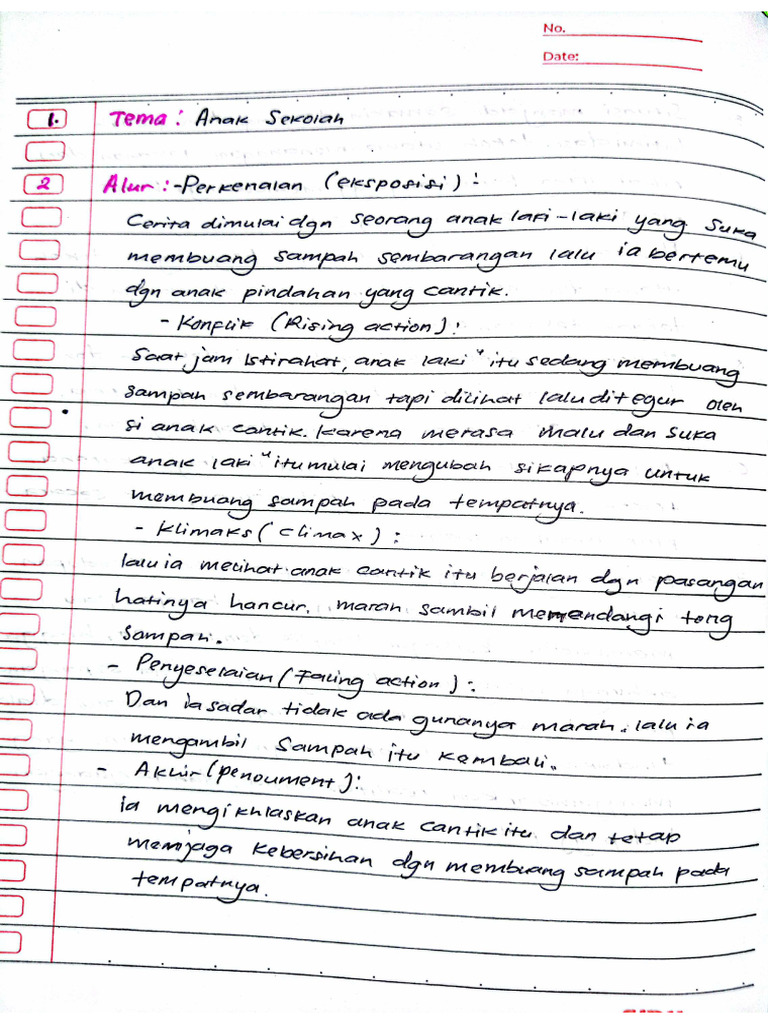 No.
Date:
1. Tema: Anak Sekolah
2 Alur:-Perkenalan (eksposisi):
Cerita dimulai dgn seorang anak laki-laki yang suka
membuang sampah sembarangan lalu ia bertemu
dgn anak pindahan yang cantik.
- Konflik (Rising action):
Saat jam istirahat, anak laki" itu sedang membuang
sampah sembarangan tapi dilihat lalu ditegur oleh
si anak cantik. karena merasa malu dan suka
anak laki" itu mulai mengubah sikapnya untuk
membuang sampah pada tempatnya.
- Klimaks (climax):
lalu ia melihat anak cantik itu berjalan dgn pasangan
hatinya hancur. marah sambil menendangi tong
sampah.
- Penyeselaian (Falling action):
Dan ia sadar tidak ada gunanya marah. lalu ia
mengambil sampah itu kembali.
- Akhir (Denoument):
ia mengikhlaskan anak cantik itu dan tetap
menjaga kebersihan dgn membuang sampah pada
tempatnya.